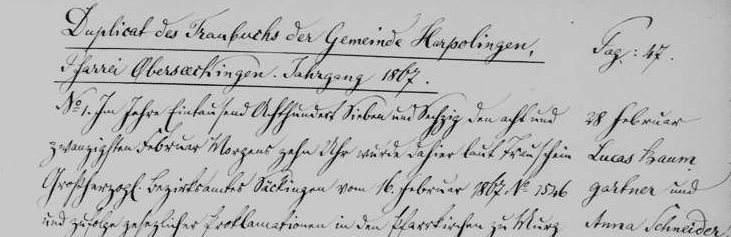 Duplicat des Traubuchs der Gemeinde Harpolingen,
Pfarrei Obersaeckingen. Jahrgang 1867.
Pag.: 47.
No 1. Im Jahre Eintausend Achthundert Sieben und Sechzig den acht und
zwanzigsten Februar Morgens zehn Uhr wurde dahier laut Trauschein
Großherzogl. Bezirksamtes Säckingen vom 16. Februar 1867. No 1546
und zufolge gesetzlicher Proklamationen in den Pfarrkirchen zu Murg
28 Februar
Lucas Baum
gartner und
Anna Schneider